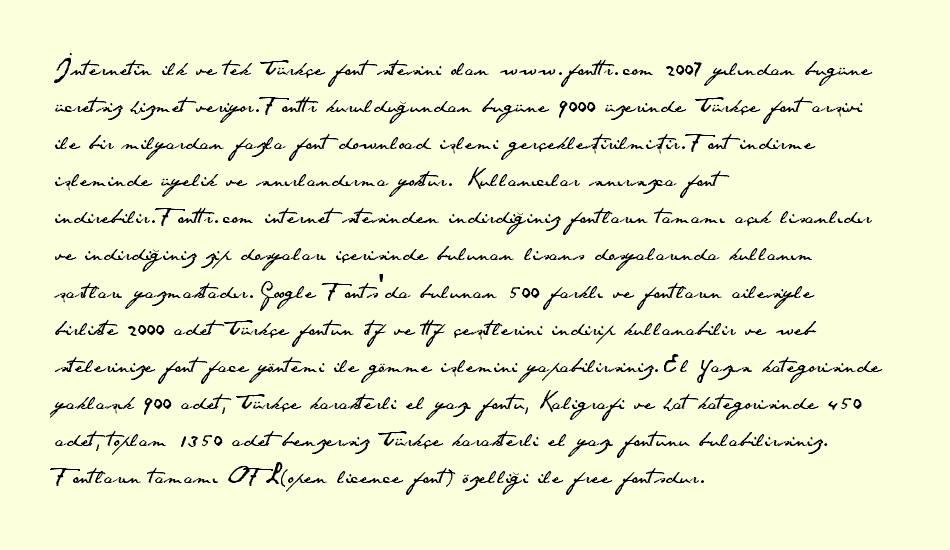 İnternetin ilk ve tek Türkçe font sitesini olan www.fonttr.com 2007 yılından bugüne
ücretsiz hizmet veriyor.Fonttr kurulduğundan bugüne 9000 üzerinde Türkçe font arşivi
ile bir milyardan fazla font download işlemi gerçekleştirilmiştir.Font indirme
işleminde üyelik ve sınırlandırma yoktur. Kullanıcılar sınırsızca font
indirebilir.Fonttr.com internet sitesinden indirdiğiniz fontların tamamı açık lisanlıdır
ve indirdiğiniz zip dosyaları içerisinde bulunan lisans dosyalarında kullanım
şartları yazmaktadır. Google Fonts'da bulunan 500 farklı ve fontların ailesiyle
birlikte 2000 adet Türkçe fontun otf ve ttf çeşitlerini indirip kullanabilir ve web
sitelerinize font face yöntemi ile gömme işlemini yapabilirsiniz.El Yazısı kategorisinde
yaklaşık 900 adet, Türkçe karakterli el yazı fontu, Kaligrafi ve hat kategorisinde 450
adet,toplam 1350 adet benzersiz Türkçe karakterli el yazı fontunu bulabilirsiniz.
Fontların tamamı OFL(open licence font) özelliği ile free fontsdur.